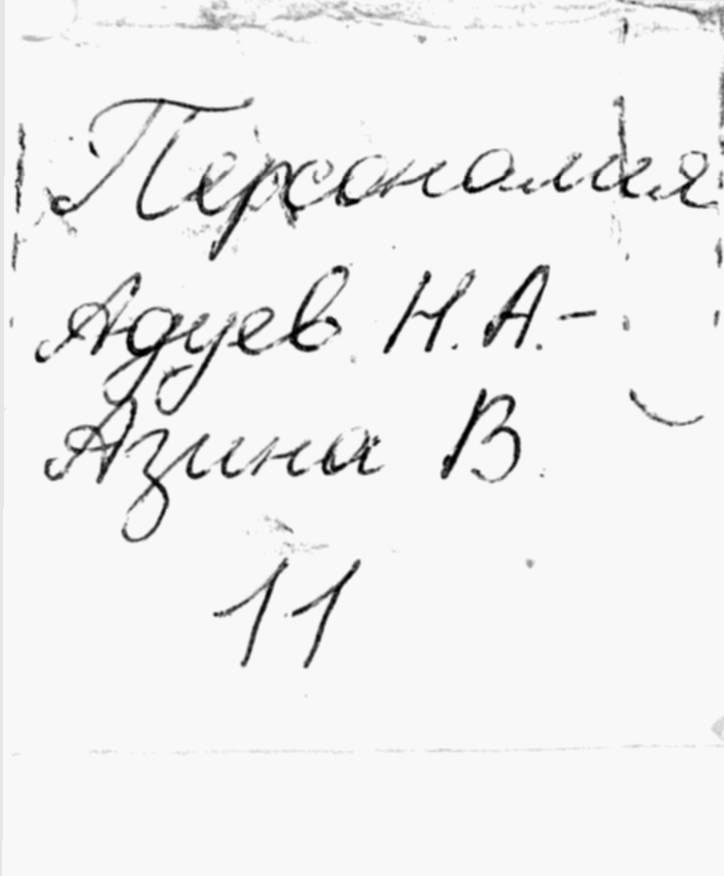 Персоналия
Адуев Н. А. -
Азина В.
11